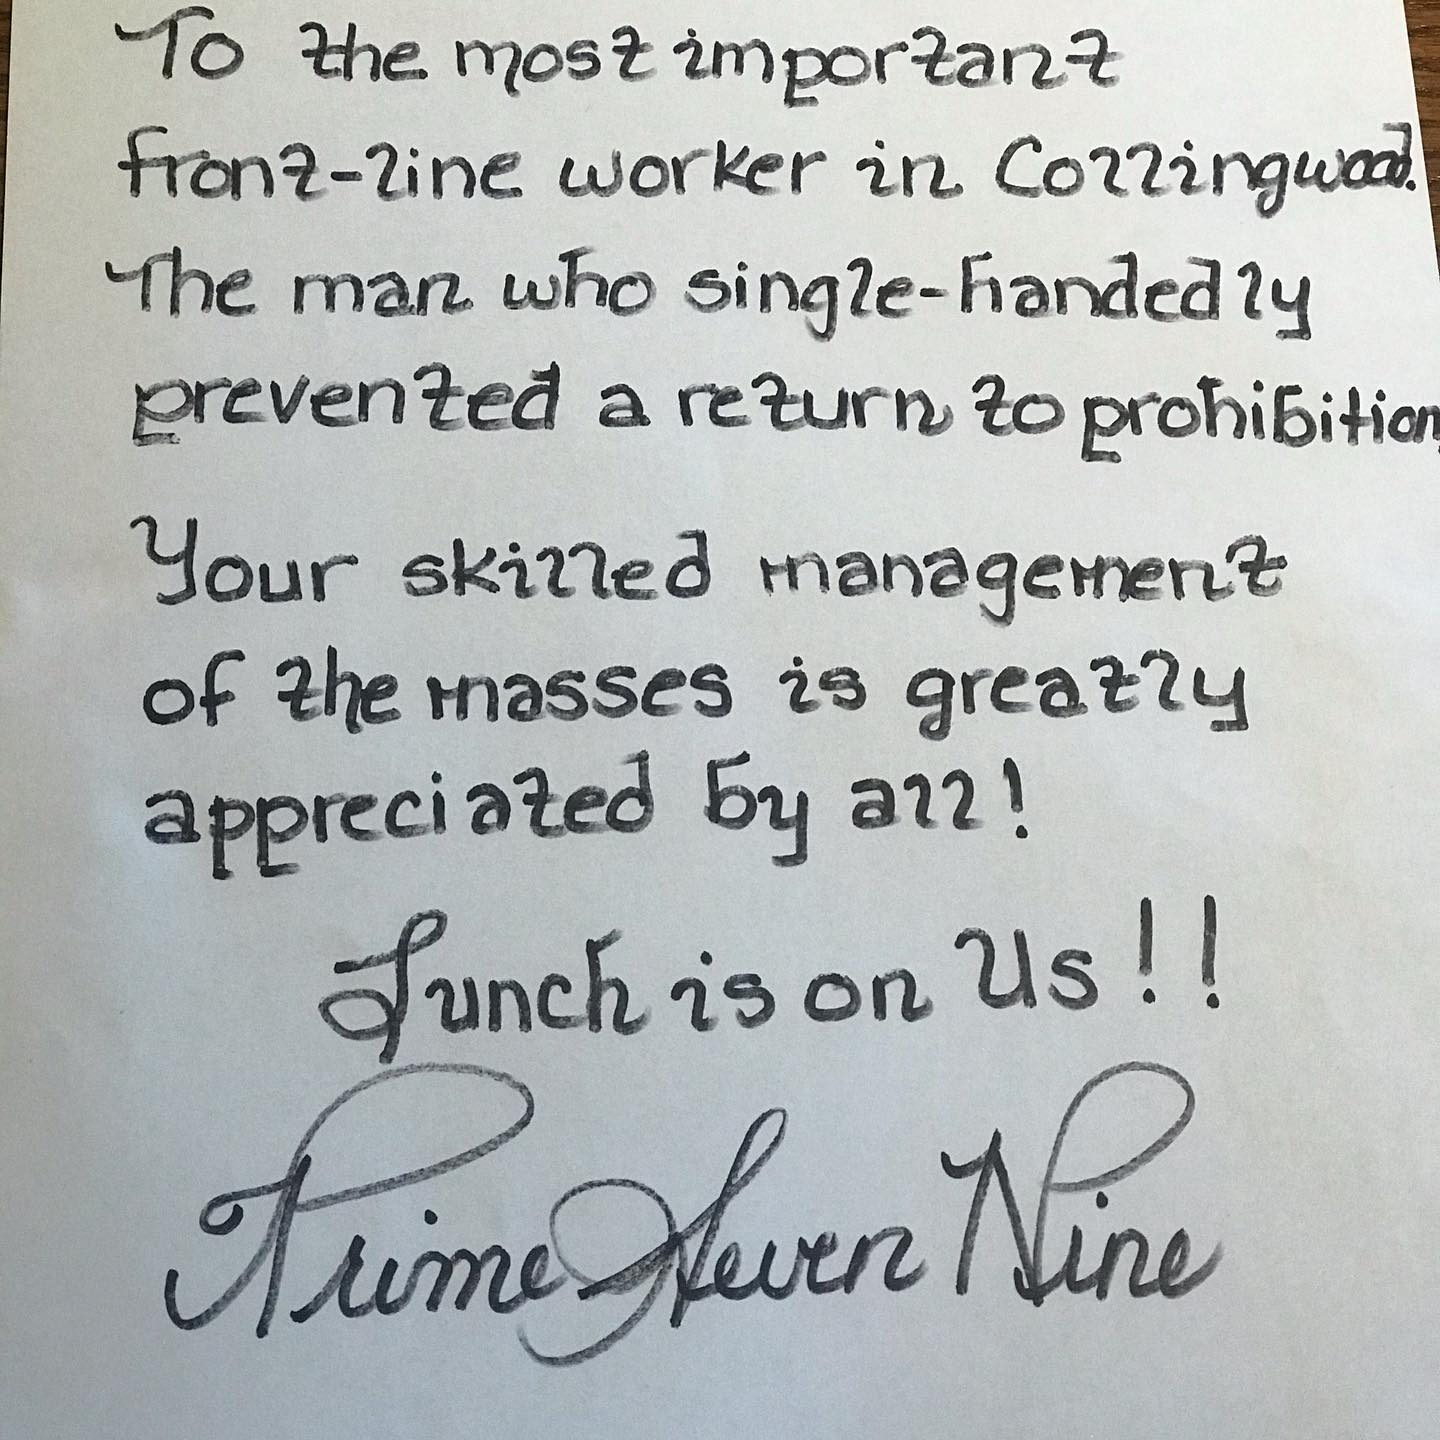 To the most important
front-line worker in Collingwood.
The man who single-handedly
prevented a return to prohibition,
Your skilled management
of the masses is greatly
appreciated by all!
Lunch is on Us!!
Prime Seven Nine